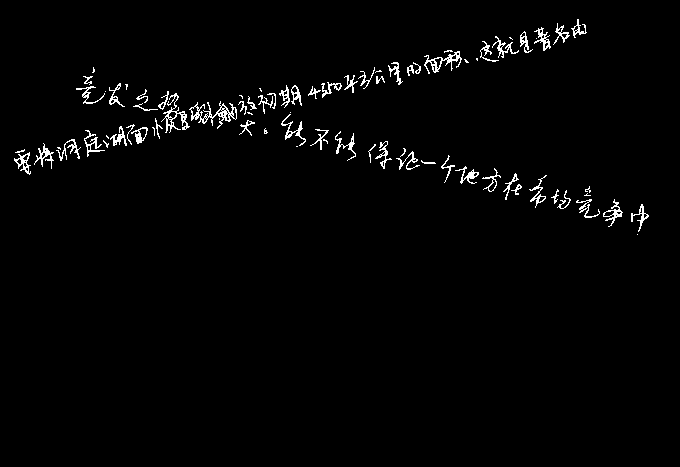 竞发之势
要将洞庭湖面恢复到解放初期4350平方公里的面积、这就是著名的
大。能不能保证一个地方在市场竞争中